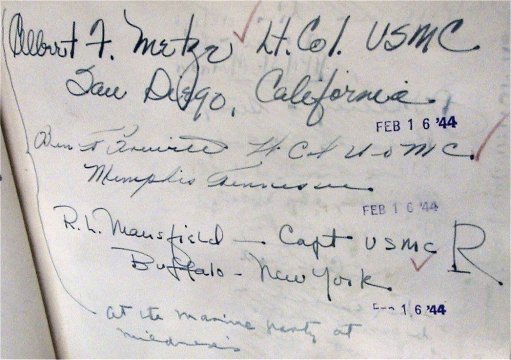 Albert F. Metze Lt. Col. USMC
San Diego, California.
FEB 16 '44
Lt Col U S M C.
Memphis Tennessee
FEB 16 '44
R. L. Mansfield — Capt USMC R
Buffalo - New York
FEB 16 '44
at the marine party at